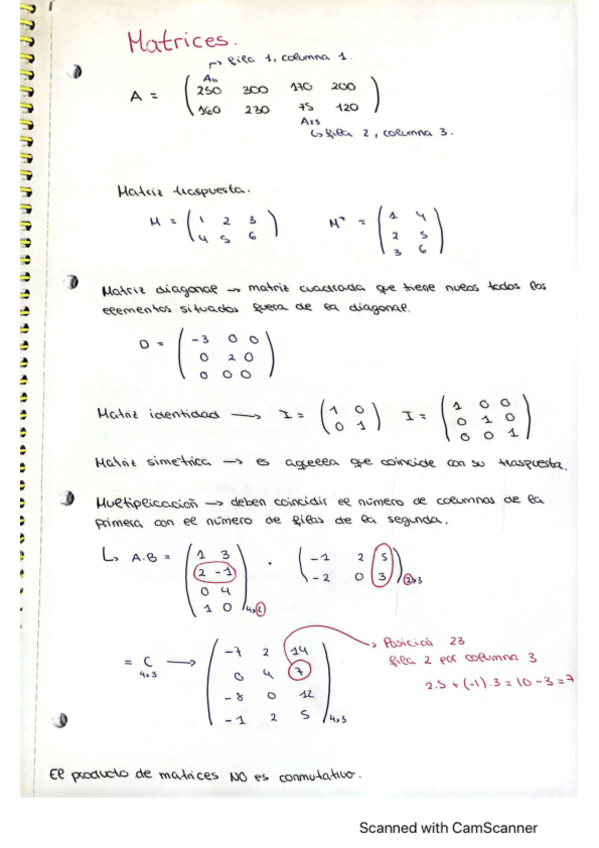 Matrices.
↱ fila 1, columna 1.
A11
A = ( 250 300 170 200
160 230 75 120 )
A23
↳ fila 2, columna 3.
Matriz traspuesta.
M = ( 1 2 3 Mt = ( 1 4
4 5 6 ) 2 5
3 6 )
Matriz diagonal → matriz cuadrada que tiene nulos todos los
elementos situados fuera de la diagonal.
D = ( -3 0 0
0 2 0
0 0 0 )
Matriz identidad → I = ( 1 0 I = ( 1 0 0
0 1 ) 0 1 0
0 0 1 )
Matriz simétrica → es aquella que coincide con su traspuesta.
Multiplicación → deben coincidir el número de columnas de la
primera con el número de filas de la segunda.
↳ A.B = ( 1 3 · ( -1 2 5
2 -1 -2 0 3 )2x3
0 4
1 0 )4x2
= C → ( -7 2 14 → Posición 23
4x3 0 4 7 fila 2 por columna 3
-8 0 12 2.5 + (-1).3 = 10 - 3 = 7
-1 2 5 )4x3
El producto de matrices NO es conmutativo.
Scanned with CamScanner